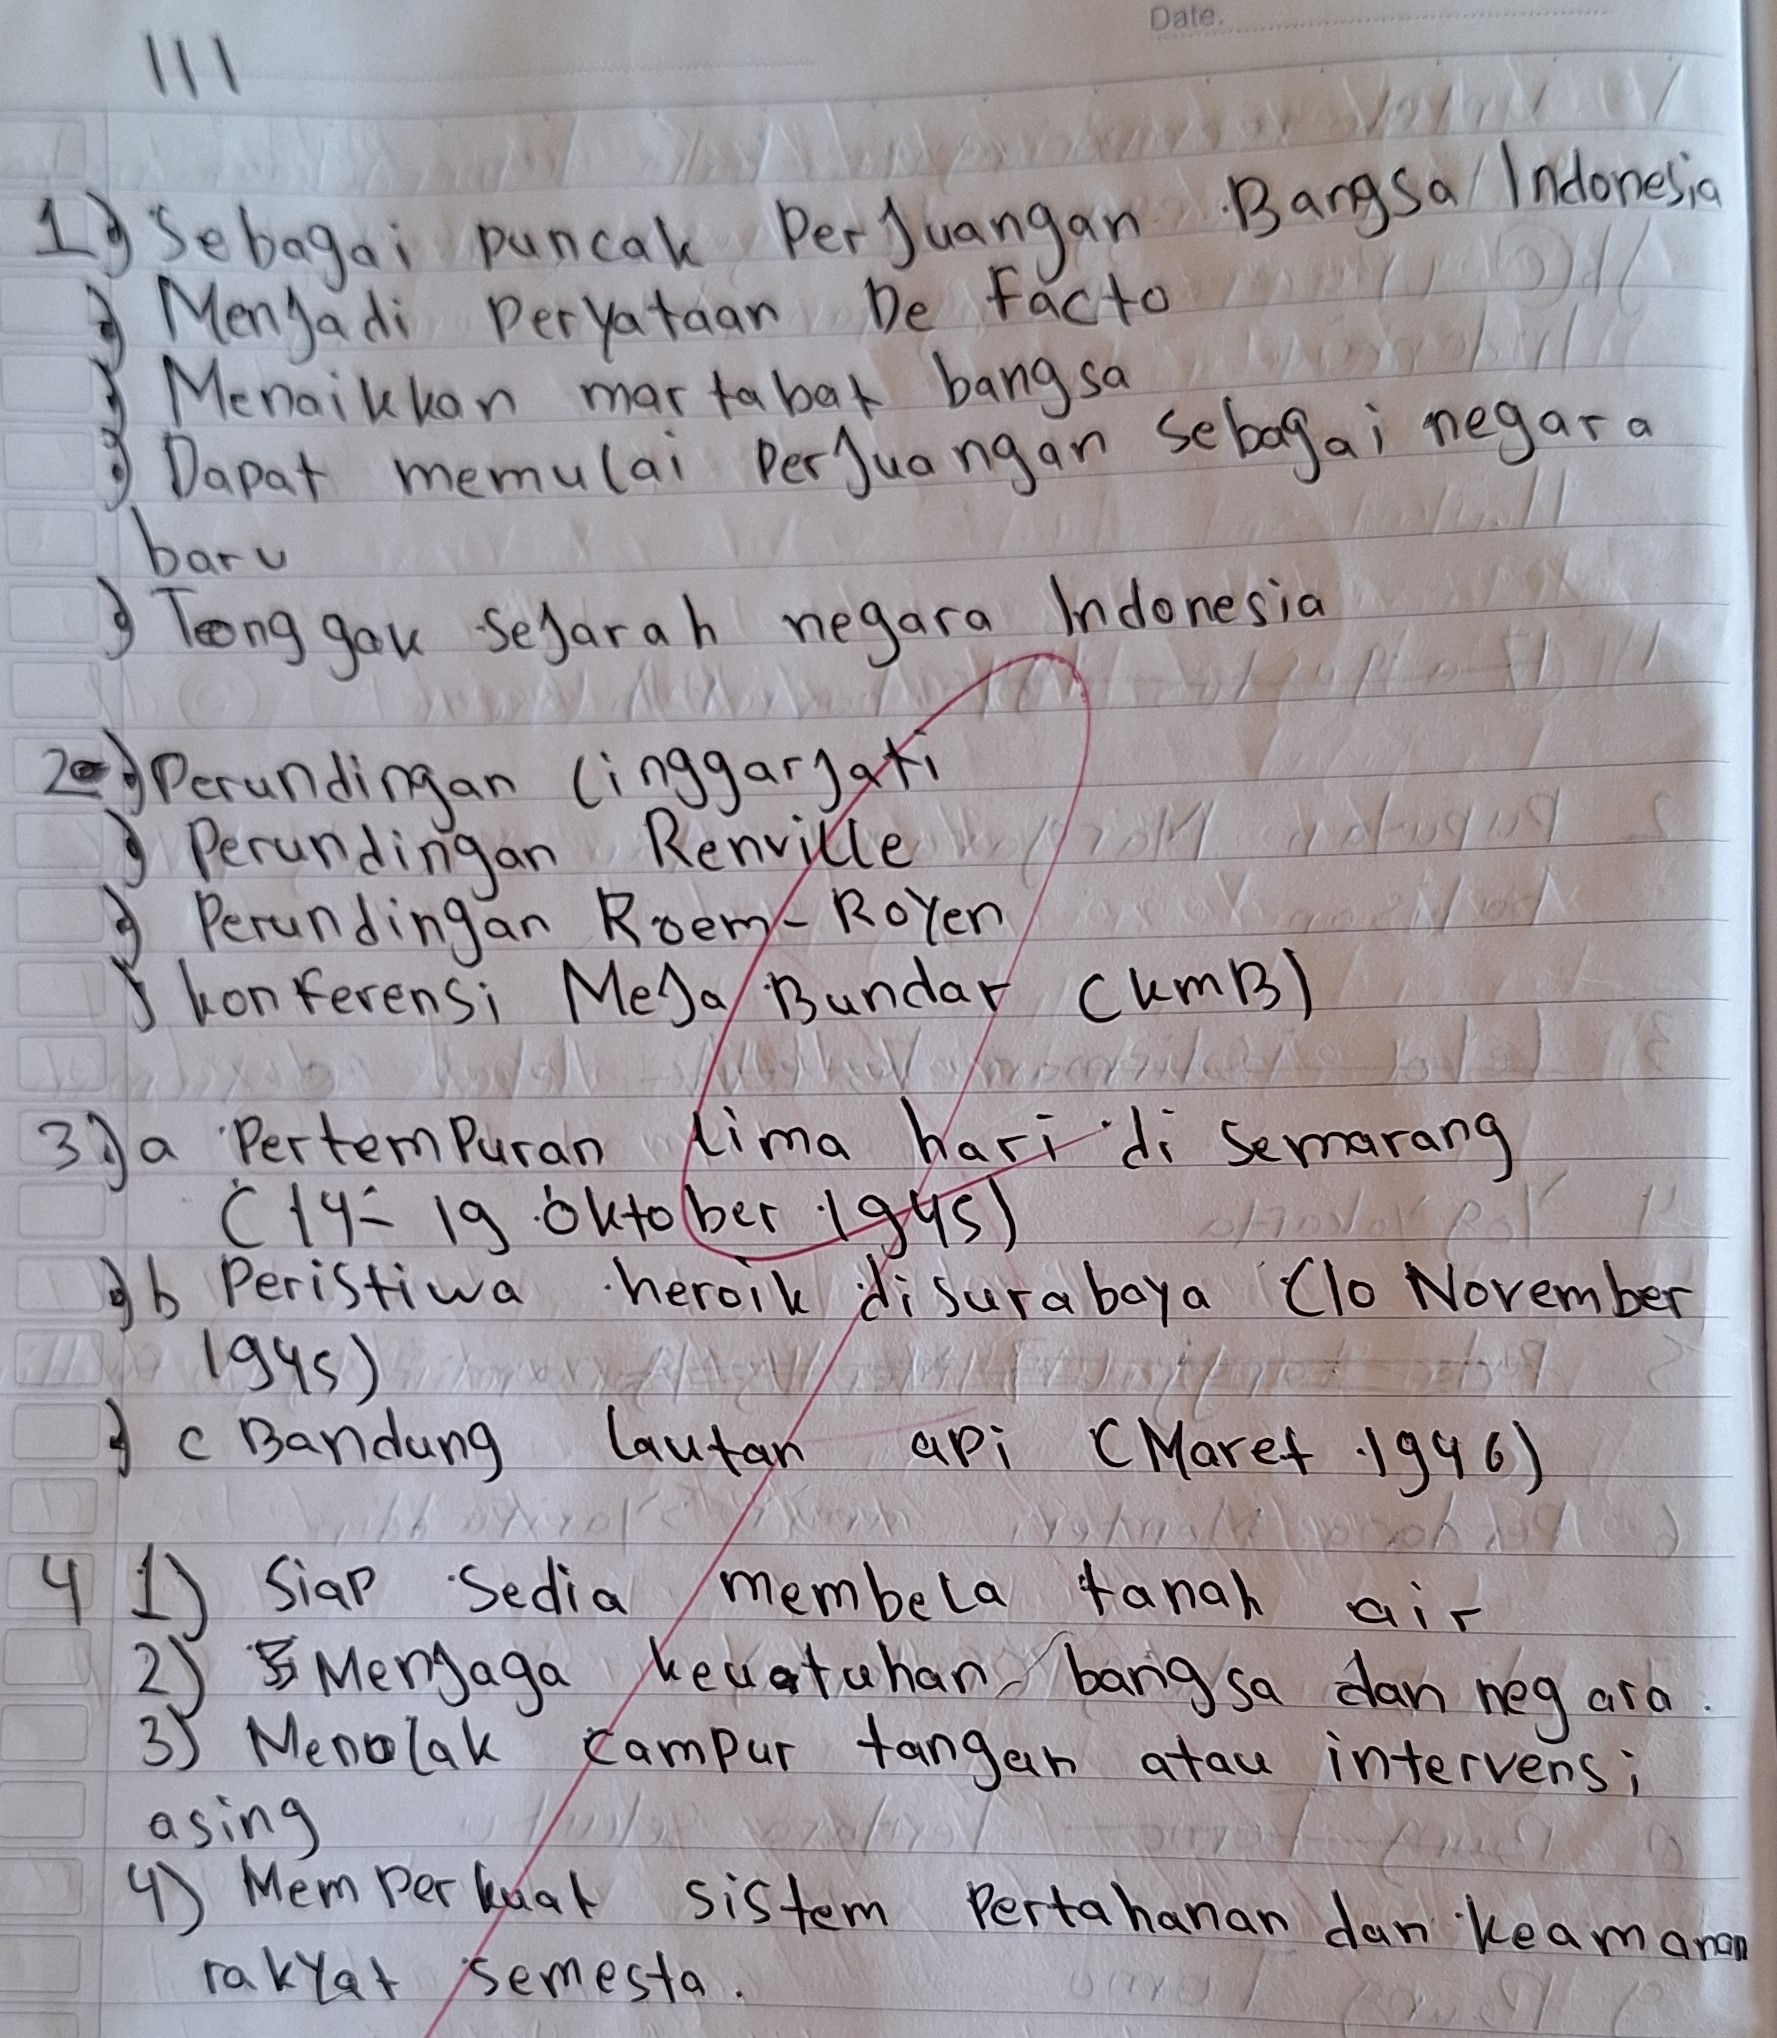 Date.
III
1) Sebagai puncak Perjuangan Bangsa Indonesia
) Menjadi Peryataan De Facto
) Menaikkan martabat bangsa
) Dapat memulai Perjuangan Sebagai negara
baru
) Tonggak sejarah negara Indonesia
2) Perundingan Linggarjati
) Perundingan Renville
) Perundingan Roem-Royen
) konferensi Meja Bundar (KMB)
3) a Pertempuran lima hari di Semarang
(14-19 Oktober 1945)
) b Peristiwa heroik di surabaya (10 November
1945)
) c Bandung lautan api (Maret 1946)
4 1) Siap Sedia membela tanah air
2) Menjaga keutuhan bangsa dan negara.
3) Menolak campur tangan atau intervensi
asing
4) Memperkuat sistem Pertahanan dan keamanan
rakyat semesta.